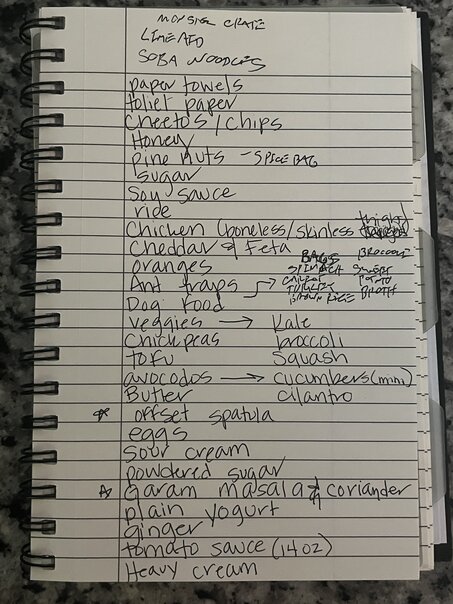 MONSTER CRATE
LIMEAID
SOBA NOODLES
paper towels
toliet paper
Cheetos/chips
Honey
pine nuts - SPICE BAG
sugar
Soy sauce
rice
Chicken (boneless/skinless thigh)
Cheddar & Feta
oranges
BAGS BROCCOLI
SPINACH SWEET
Ant traps POTATO
TURKEY BROTH
Dog Food BROWN RICE
veggies → Kale
Chickpeas broccoli
TOFU Squash
avocodos → cucumbers (mini)
Butter cilantro
offset spatula
eggs
sour cream
powdered sugar
Garam masala & coriander
plain yogurt
ginger
tomato sauce (14 oz)
Heavy cream